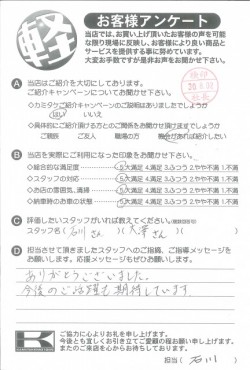 軽
お客様アンケート
当店では、お買い上げ頂いたお客様の声を可能な限り現場に反映し、お客様により良い商品と
サービスを提供する事に努めています。
大変お手数ですが是非お声をお聞かせ下さい。
A 当店はご紹介を大切にしております。
ご紹介キャンペーンについてお聞かせ下さい
◇カミタケご紹介キャンペーンのご説明はありましたでしょうか
はい いいえ
◇具体的にご紹介頂ける方とのご関係をお聞かせ頂けますでしょうか
ご親族 ご友人 職場の方
B 当店を実際にご利用になった印象をお聞かせ下さい
◇総合的な満足度 5.大満足 4.満足 3.ふつう 2.やや不満 1.不満
◇スタッフの対応 5.大満足 4.満足 3.ふつう 2.やや不満 1.不満
◇お店の雰囲気、清掃 5.大満足 4.満足 3.ふつう 2.やや不満 1.不満
◇納車時のお車の状態 5.大満足 4.満足 3.ふつう 2.やや不満 1.不満
C 評価したいスタッフがいれば教えてください。
スタッフ名 (石川さん) (大澤さん)
D 担当させて頂きましたスタッフへのご指摘、ご指導メッセージを
お願いします。応援メッセージもぜひお願いします。
ありがとうございました。
今後のご活躍も期待しています。
K
ご協力に心よりお礼を申し上げます。
今後とも宜しくお引き立てご愛顧の程お願い申し上げます。
またのご来店を心からお待ちしております。
担当 (石川)